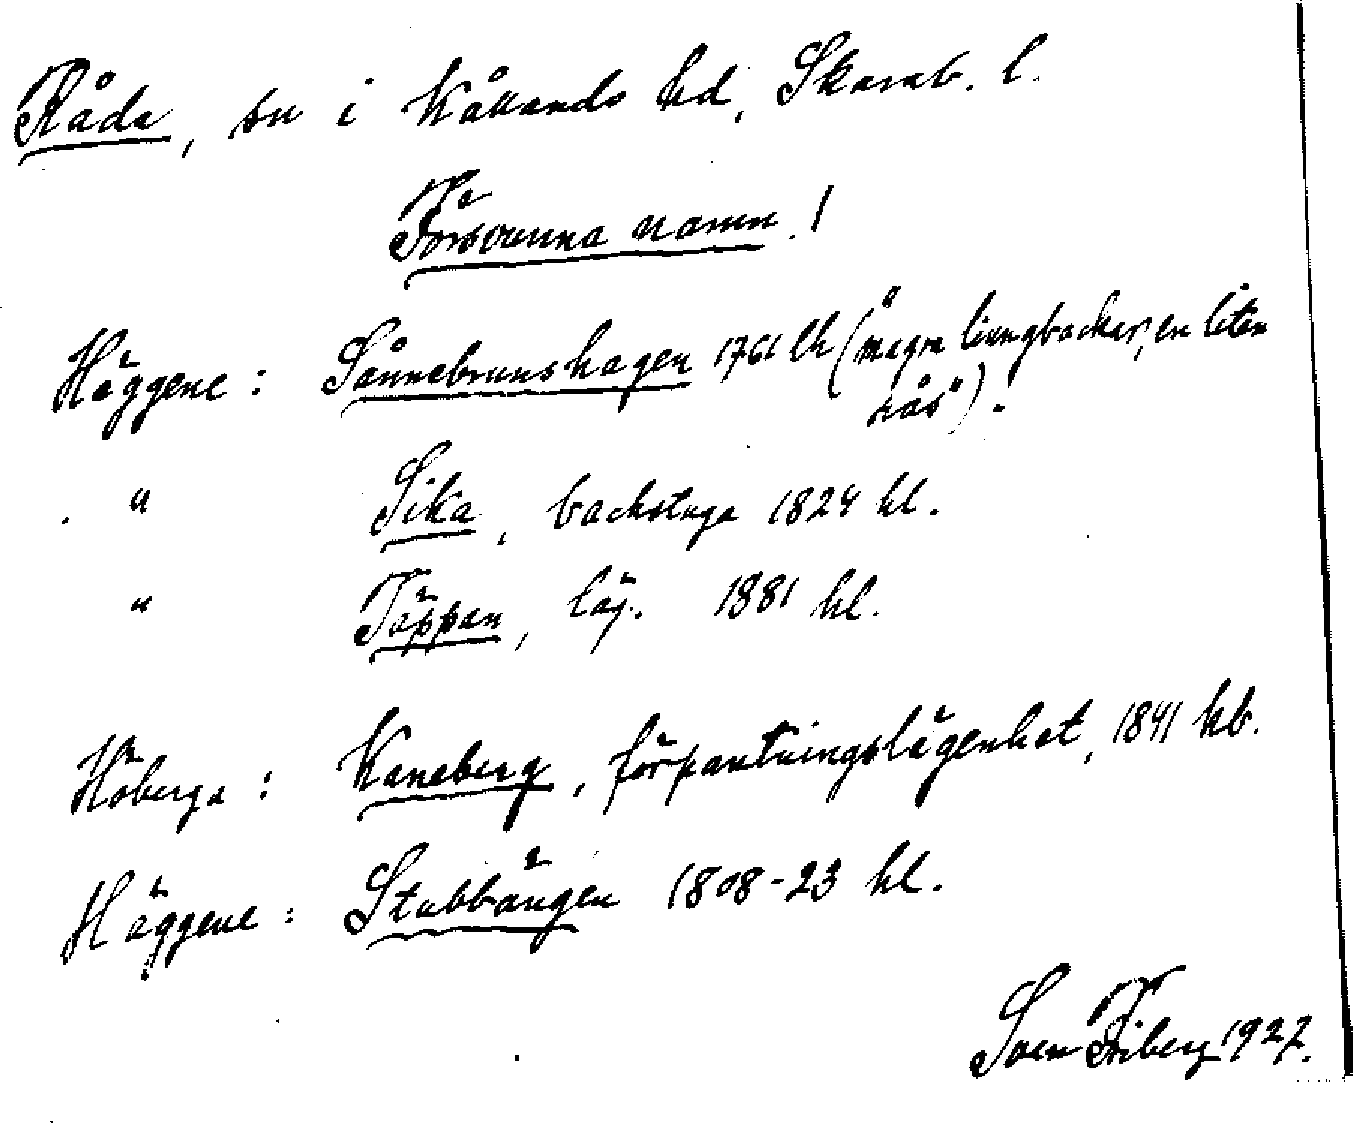 Råda, sn i Kållands hd, Skarab. l.
Försvunna namn!
Häggene: Sånnebrunshagen 1761 lh (några ljungbackar, en liten
hås).
" Sika, backstuga 1824 hl.
" Täppan, läg. 1881 hl.
Höberga: Kaneberg, förpantningslägenhet, 1841 hb.
Häggene: Stubbängen 1808-23 hl.
Sven Friberg 1927.